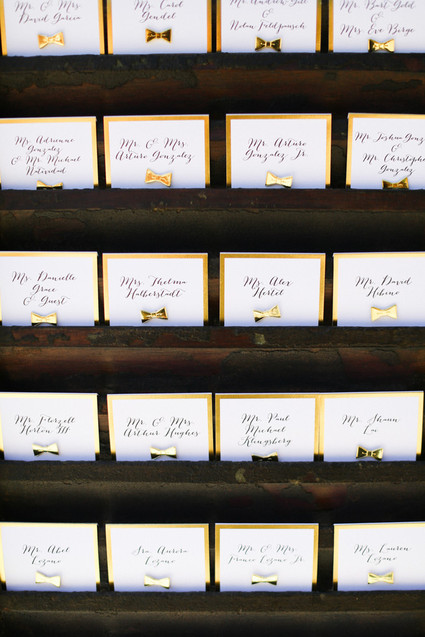 Mr. & Mrs.
David Garcia
Ms. Carol
Gendel
Mr. Andrew Gill
&
Nolan Feldpausch
Mr. Burt Gold
&
Mrs. Eve Borge
Ms. Adrienne
Gonzalez
& Mr. Michael
Natividad
Mr. & Mrs.
Arturo Gonzalez
Mr. Arturo
Gonzalez Jr.
Mr. Joshua Gonzalez
&
Mr. Christopher
Gonzalez
Ms. Danielle
Grace
& Guest
Mrs. Thelma
Halberstadt
Ms. Alex
Hertel
Mr. David
Hebino
Mr. Floyzell
Horton III
Mr. & Mrs.
Arthur Hughes
Mr. Paul
Michael
Klingsberg
Mr. Shaun
Mr. Abel
Lozano
Sra. Aurora
Lozano
Mr. & Mrs.
Franco Lozano Jr.
Ms. Lauren
Lozano